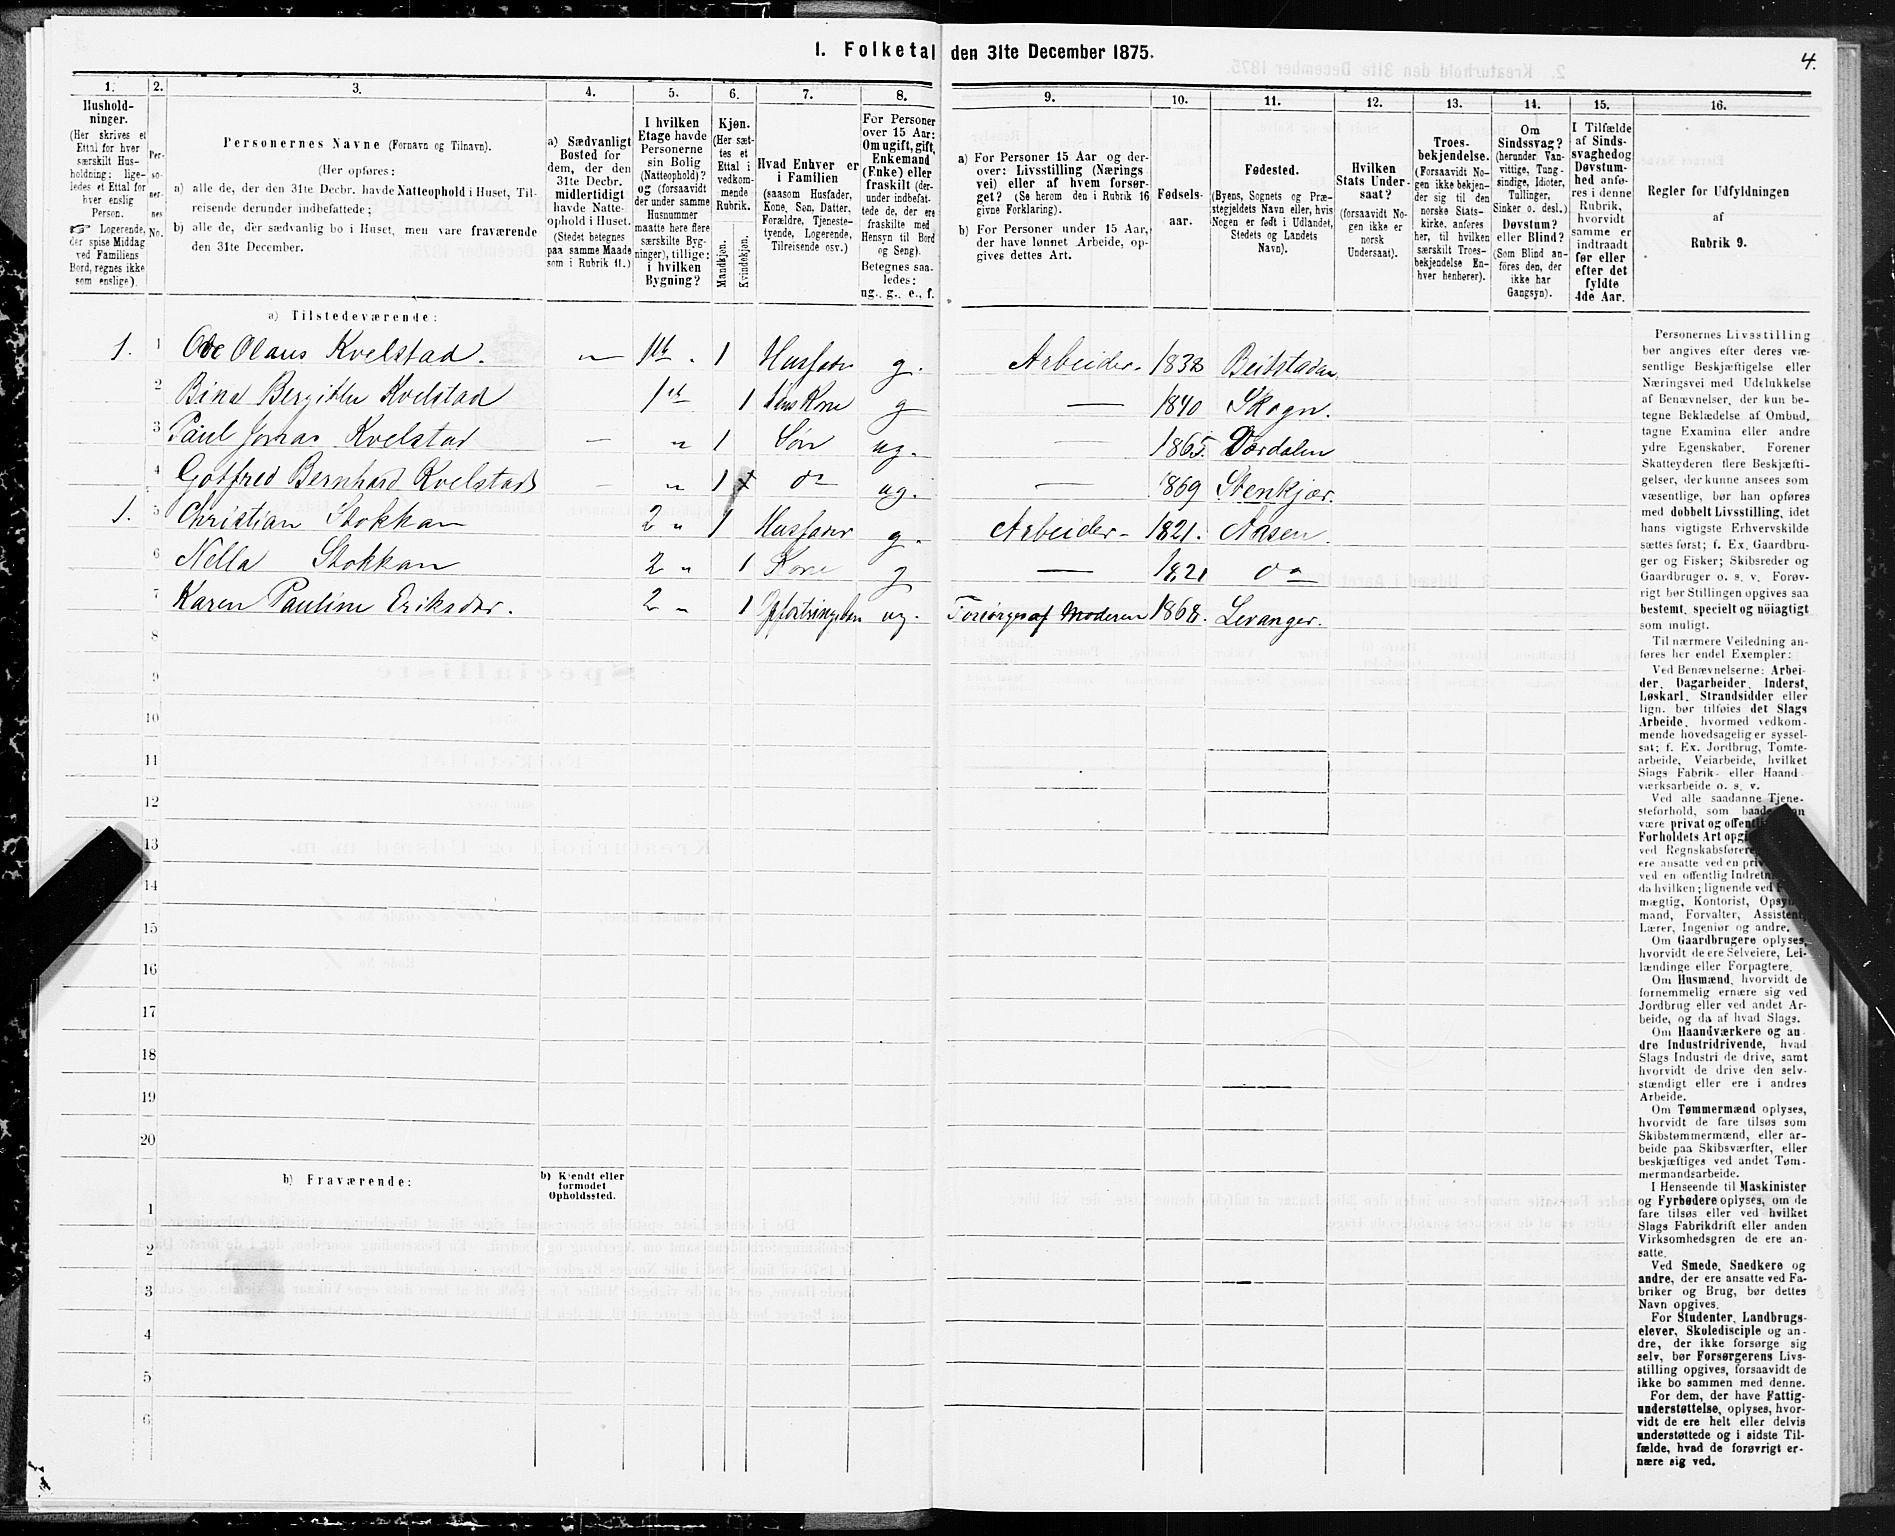 1. Folketal den 31te December 1875.
4.
1. 2. 3. 4. 5. 6. 7. 8. 9. 10. 11. 12. 13. 14. 15. 16.
Husholdninger.
(Her skrives et
Ettal for hver
særskilt Hus-
holdning; lige-
ledes et Ettal for
hver enslig
Person.
☞ Logerende,
der spise Middag
ved Familiens
Bord, regnes ikke
som enslige).
Per-
so-
ner-
nes
No.
Personernes Navne (Fornavn og Tilnavn).
(Her opføres:
a) alle de, der den 31te Decbr. havde Natteophold i Huset, Til-
reisende derunder indbefattede;
b) alle de, der sædvanlig bo i Huset, men vare fraværende
den 31te December.
a) Sædvanligt
Bosted for
dem, der den
31te Decbr.
midlertidigt
havde Natte-
ophold i Huset.
(Stedet betegnes
paa samme Maade
som i Rubrik 11.)
I hvilken
Etage havde
Personerne
sin Bolig
(Natteophold)?
og (forsaavidt
der under samme
Husnummer
maatte høre flere
særskilte Byg-
ninger), tillige:
i hvilken
Bygning?
Kjøn.
(Her sæt-
tes et
Ettal i
vedkom-
mende
Rubrik.
Mandkjøn.
Kvindekjøn.
Hvad Enhver er
i Familien
(saasom Husfader,
Kone, Søn, Datter,
Forældre, Tjeneste-
tyende, Logerende,
Tilreisende osv.)
For Personer
over 15 Aar:
Om ugift, gift,
Enkemand
(Enke) eller
fraskilt (der-
under indbefat-
tede de, der ere
fraskilte med
Hensyn til Bord
og Seng).
Betegnes saa-
ledes:
ug., g., e., f.
a) For Personer 15 Aar og der-
over: Livsstilling (Nærings
vei) eller af hvem forsør-
get? (Se herom den i Rubrik 16
givne Forklaring).
b) For Personer under 15 Aar,
der have lønnet Arbeide, op-
gives dettes Art.
Fødsels-
aar.
Fødested.
(Byens, Sognets og Præ-
stegjeldets Navn eller, hvis
Nogen er født i Udlandet,
Stedets og Landets
Navn).
Hvilken
Stats Under-
saat?
(forsaavidt No-
gen ikke er
norsk
Undersaat).
Troes-
bekjendelse.
(Forsaavidt No-
gen ikke bekjen-
der sig til den
norske Stats-
kirke, anføres
her, til hvilken
særskilt Troes-
bekjendelse En-
hver henhører).
Om
Sindssvag?
(herunder Van-
vittige, Tung-
sindige, Idioter,
Tullinger,
Sinker o. desl.)
Døvstum?
eller Blind?
(Som Blind an-
føres den, der
ikke har
Gangsyn).
I Tilfælde
af Sinds-
svaghed og
Døvstum-
hed anfø-
res i denne
Rubrik,
hvorvidt
samme er
indtraadt
før eller
efter det
fyldte
4de Aar.
Regler for Udfyldningen
af
Rubrik 9.
a) Tilstedeværende:
1. 1 Ole Olaus Kvelstad. — 1ste „ 1 Husfader g. Arbeider. 1838 Beitstaden.
2 Bina Bergitte Kvelstad 1ste 1 hans Kone g — 1840 Skogn.
3 Paul Jonas Kvelstad — „ 1 Søn ug. — 1865. Værdalen
4 Gotfred Bernhard Kvelstad — „ 1 do ug. — 1869 Stenkjær.
1. 5 Christian Stokkan 2 „ 1 Husfader g. Arbeider — 1821. Aasen.
6 Nella Stokkan 2 „ 1 Kone g — 1821 do
7 Karen Pauline Eriksdtr. 2 „ 1 Opfostringsbarn ug. Forsørges af Moderen 1868. Levanger.
8
9
10
11
12
13
14
15
16
17
18
19
20
b) Fraværende:
b) Kjendt eller
formodet
Opholdssted.
1
2
3
4
5
6
Personernes Livsstilling
bør angives efter deres væ-
sentlige Beskjæftigelse eller
Næringsvei med Udelukkelse
af Benævnelser, der kun be-
tegne Beklædelse af Ombud,
tagne Examina eller andre
ydre Egenskaber. Forener
Skatteyderen flere Beskjæfti-
gelser, der kunne ansees som
væsentlige, bør han opføres
med dobbelt Livsstilling, idet
hans vigtigste Erhvervskilde
sættes først; f. Ex. Gaardbru-
ger og Fisker; Skibsreder og
Gaardbruger o. s. v. Forøv-
rigt bør Stillingen opgives saa
bestemt, specielt og nøiagtigt
som muligt.
Til nærmere Veiledning an-
føres her endel Exempler:
Ved Benævnelserne: Arbei-
der, Dagarbeider, Inderst,
Løskarl, Strandsidder eller
lign. bør tilføies det Slags
Arbeide, hvormed vedkom-
mende hovedsagelig er syssel-
sat; f. Ex. Jordbrug, Tomte-
arbeide, Veiarbeide, hvilket
Slags Fabrik- eller Haand
værksarbeide o. s. v.
Ved alle saadanne Tjene-
steforhold, som baade
være privat og
Forholdets Art
ved Regnskabsførere,
ere ansatte ved en
ved en offentlig
da hvilken; lignende ved
mægtig, Kontorist,
mand, Forvalter, Assistent,
Lærer, Ingeniør og andre.
Om Gaardbrugere oplyses,
hvorvidt de ere Selveiere, Lei-
lændinge eller Forpagtere.
Om Husmænd, hvorvidt de
fornemmelig ernære sig ved
Jordbrug eller ved andet Ar-
beide, og da af hvad Slags.
Om Haandværkere og an
dre Industridrivende, hvad
Slags Industri de drive, samt
hvorvidt de drive den selv-
stændigt eller ere i andres
Arbeide.
Om Tømmermænd oplyses,
hvorvidt de fare tilsøs som
Skibstømmermænd, eller ar-
beide paa Skibsværfter, eller
beskjæftiges ved andet Tøm-
mermandsarbeide.
I Henseende til Maskinister
og Fyrbødere oplyses, om de
fare tilsøs eller ved hvilket
Slags Fabrikdrift eller anden
Virksomhedsgren de ere an-
satte.
Ved Smede, Snedkere og
andre, der ere ansatte ved Fa-
briker og Brug, bør dettes
Navn opgives.
For Studenter, Landbrugs-
elever, Skoledisciple og an-
dre, der ikke forsørge sig
selv, bør Forsørgerens Livs-
stilling opgives, forsaavidt de
ikke bo sammen med denne.
For dem, der have Fattig-
understøttelse, oplyses, hvor-
vidt de ere helt eller delvis
understøttede og i sidste Til-
fælde, hvad de forøvrigt er-
nære sig ved.